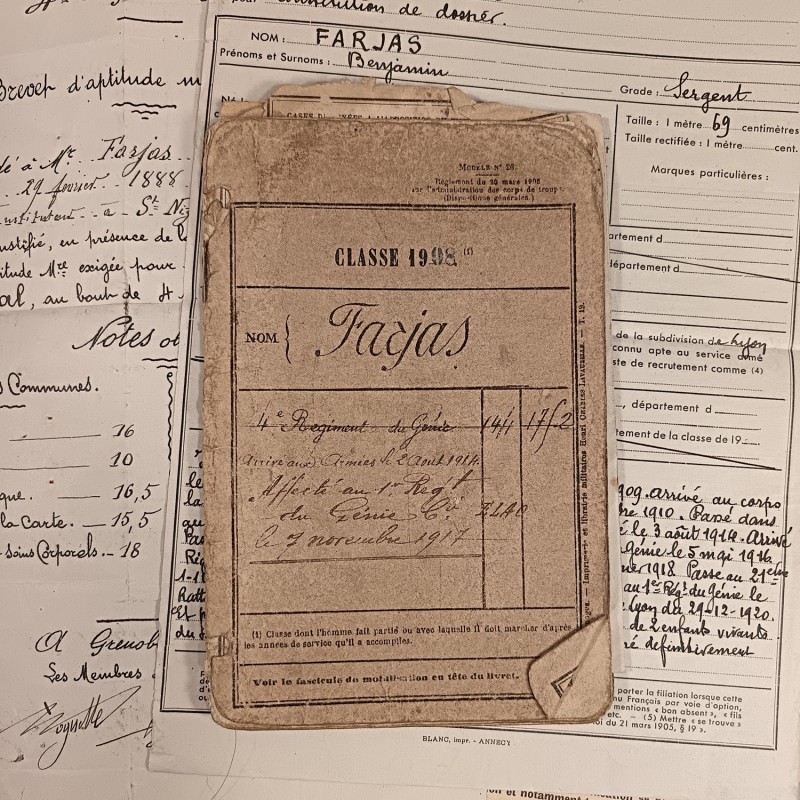 constitution de dossier.
NOM : FARJAS
Prénoms et Surnoms : Benjamin
Grade : Sergent
Taille : 1 mètre 69 centimètres
Taille rectifiée : 1 mètre cent.
Marques particulières :
Né
artement d
département d
de la subdivision de Lyon
connu apte au service armé
ste de recrutement comme (4)
, département d
tement de la classe de 19
909. arrivé au corps
bre 1910. Passé dans
é le 3 août 1914. Arrivé
génie le 5 mai 1916.
1918 Passe au 21eme
au 1er Régt du Génie le
Lyon du 29-12-1920.
de 2 enfants vivants
définitivement
porter la filiation lorsque cette
nu Français par voie d'option,
mentions « bon absent », « fils
etc. — (5) Mettre « se trouve »
loi du 21 mars 1905, § 19 ».
BLANC, impr. - ANNECY
on et notamment
Brevet d'aptitude
é à Mr Farjas
29 février 1888
nstituteur à St
ustifié, en présence de
itude Mre exigée pour
al, au bout de 4
Notes
s Communes.
16
10
que. — 16,5
la Carte. — 15,5
Soins Corporels. — 18
A Grenob
Les Membres
MODÈLE N° 26.
Règlement du 20 mars 1906
sur l'administration des corps de troupe
(Dispositions générales.)
CLASSE 1908 (1)
NOM { Farjas
4e Régiment du Génie 14/1 17/52
Arrivé aux Armées le 2 Août 1914.
Affecté au 1er Régt
du Génie
le 7 novembre 1917
Imprimerie et librairie militaires Henri CHARLES-LAVAUZELLE
(1) Classe dont l'homme fait partie ou avec laquelle il doit marcher d'après
les années de service qu'il a accomplies.
Voir le fascicule de mobilisation en tête du livret.